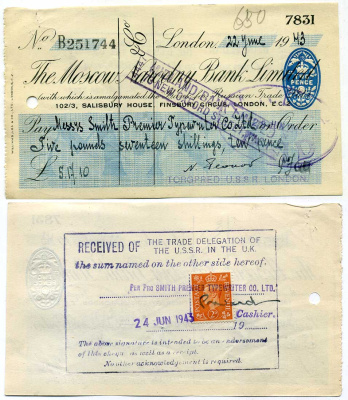 650
7831
No B251744
London, 22 June 1943
The Moscow Narodny Bank Limited
(with which is amalgamated the Bank for Russian Trade Ltd.)
102/3, SALISBURY HOUSE, FINSBURY CIRCUS, LONDON, E.C.2.
PENCE
Pay Messrs Smith Premier Typewriter Co Ltd or Order
Five pounds seventeen shillings, ten pence
£ 5.17.10
TORGPRED U.S.S.R. LONDON.
7831
RECEIVED OF THE TRADE DELEGATION OF
THE U.S.S.R. IN THE U.K.
the sum named on the other side hereof.
FOR THE SMITH PREMIER TYPEWRITER CO. LTD.
Cashier.
24 JUN 1943 19
The above signature is intended to be an endorsement
of this cheque as well as a receipt.
No other acknowledgment is required.